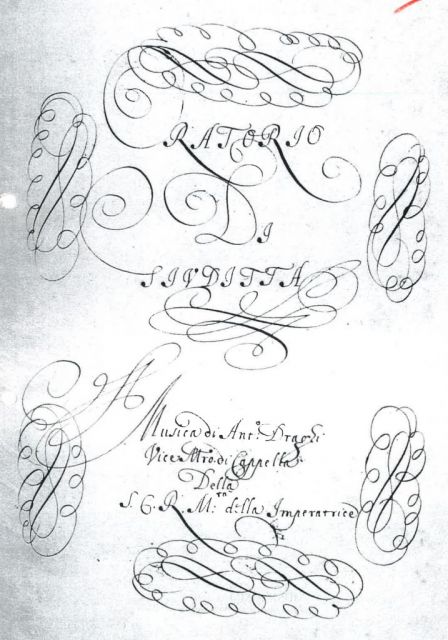 ORATORIO
DI
GIUDITTA
Musica di Ant.º Draghi
Vice Mro. di Cappella
Della
S. C. R. M.ᵗᵃ della Imperatrice